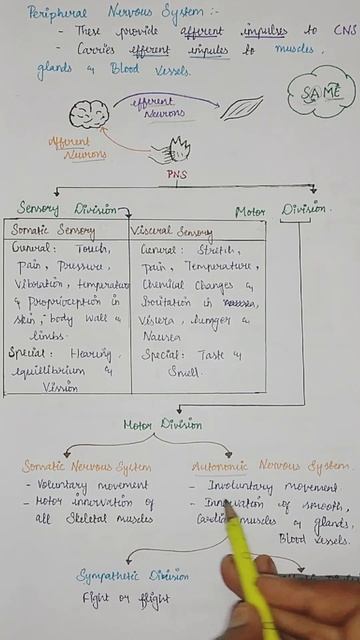 Peripheral Nervous System :-
- These provide afferent impulses to CNS
- Carries efferent impules to muscles,
glands & Blood vessels.
SAME
efferent
Neurons
Afferent
Neurons
PNS
Sensory Division
Motor Division
Somatic Sensory
General: Touch,
Pain, Pressure,
Vibration, temperature
& proprioception in
skin, body wall &
limbs.
Special: Hearing,
equilibrium &
Vission
Visceral Sensory
General: Stretch,
pain, Temperature,
Chemical Changes &
Irritation in
Viscera, hunger &
Nausea
Special: Taste &
Smell.
Motor Division
Somatic Nervous System
- Voluntary movement
- Motor innervation of
all Skeletal muscles
Autonomic Nervous System
- Involuntary movement
- of smooth,
Cardiac muscles & glands,
Blood vessels.
Sympathetic Division
Fight or flight